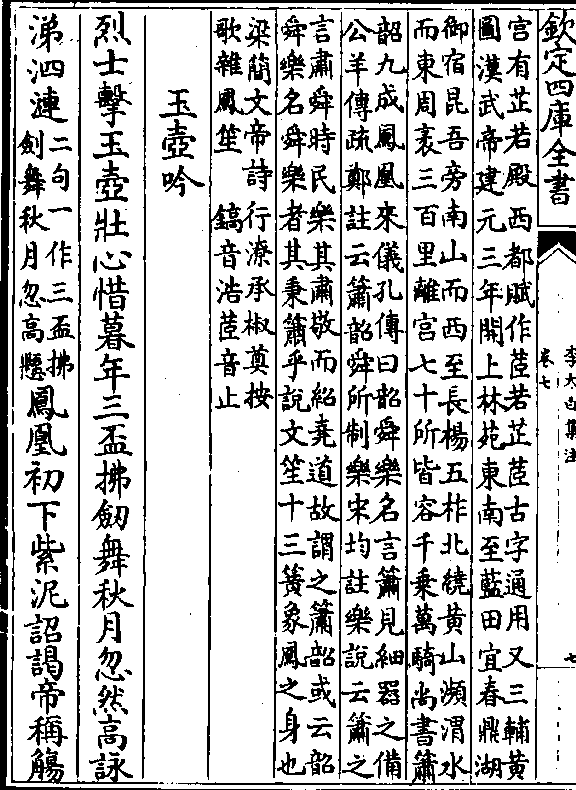 欽定四庫全書
李太白集注
卷七
七
宫有茝若殿西都賦作茝若芷茝古字通用又三輔黄
圖漢武帝建元三年開上林苑東南至藍田宜春鼎湖
御宿昆吾旁南山而西至長楊五柞北繞黄山瀕渭水
而東周袤三百里離宫七十所皆容千乗萬騎尚書簫
韶九成鳳凰來儀孔傳曰韶舜樂名言簫見細器之備
公羊傳疏鄭註云簫韶舜所制樂宋均註樂說云簫之
言肅舜時民樂其肅敬而紹堯道故謂之簫韶或云韶
舜樂名舜樂者其秉簫乎說文笙十三簧象鳳之身也
梁簡文帝詩行潦承椒奠按
歌雜鳳笙　鎬音浩茝音止
玉壺吟
烈士擊玉壺壯心惜暮年三盃拂劒舞秋月忽然高詠
涕泗漣二句一作三盃拂劍舞秋月忽高懸鳳凰初下紫泥詔謁帝稱觴